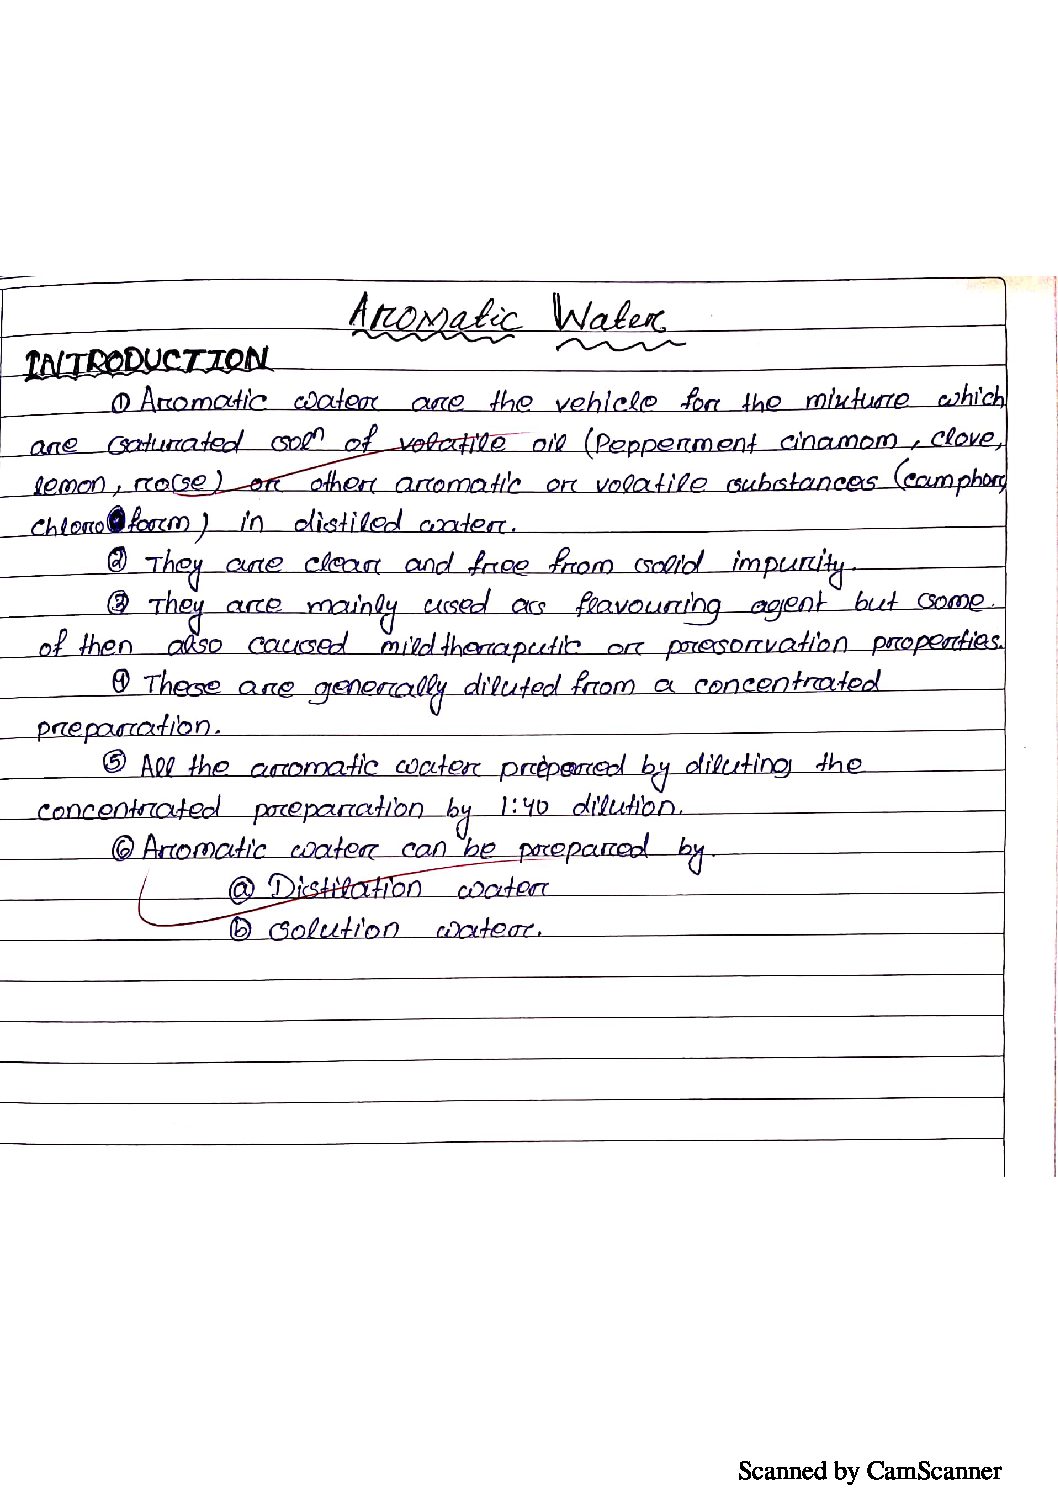 Aromatic Water
INTRODUCTION
① Aromatic water are the vehicle for the mixture which
are saturated solⁿ of volatile oil (Pepperment cinamom, clove,
lemon, rose) or other aromatic or volatile substances (camphor,
chloroform) in distiled water.
② They are clear and free from solid impurity.
③ They are mainly used as flavouring agent but some
of then also caused mild therapeutic or presorvation properties.
④ These are generally diluted from a concentrated
preparation.
⑤ All the aromatic water prepared by diluting the
concentrated preparation by 1:40 dilution.
⑥ Aromatic water can be prepared by.
ⓐ Distilation water
ⓑ Solution water.
Scanned by CamScanner